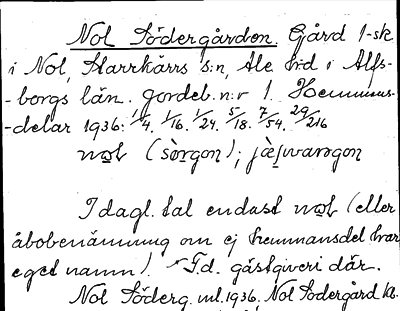 Nol Södergården. Gård 1-sk
i Nol, Starrkärrs s:n, Ale h:d i Älfs-
-borgs län. Jordeb. n:r 1. Hemmans-
-delar 1936: 1/4, 1/16. 1/24. 5/18. 7/54. 29/216
(sörgon);
I dagl. tal endast (eller
åbobenämning om ej hemmansdel har
eget namn). F.d. gästgiveri där.
Nol Söderg. ml. 1936, Nol Södergård Kb.